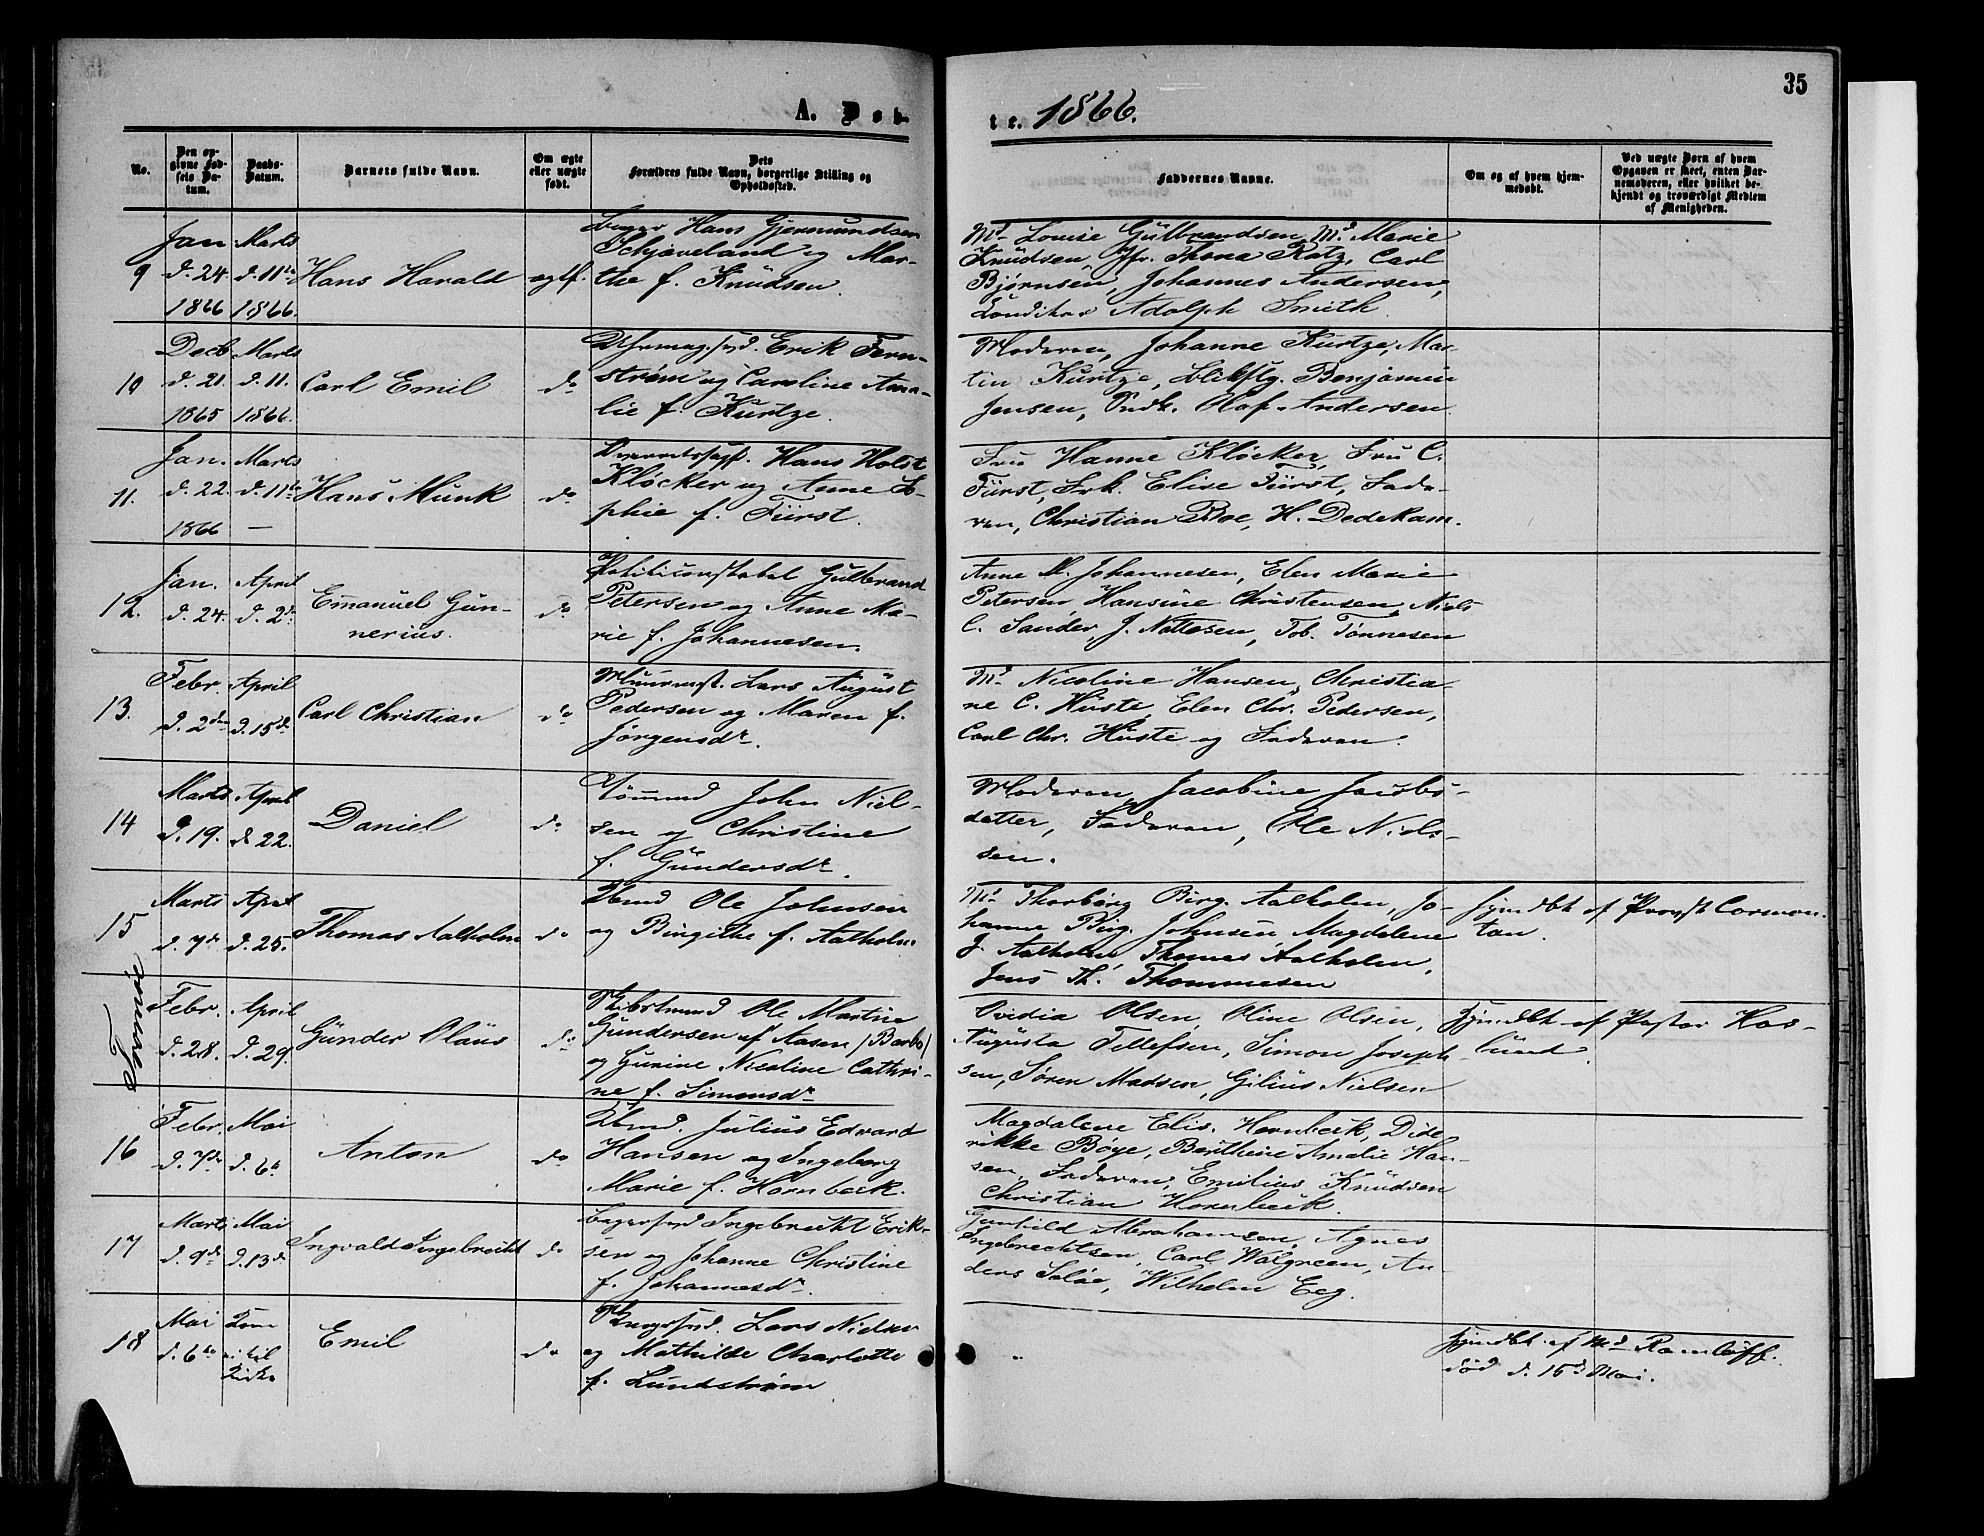 35
A. Døb-
te. 1866.
No.
Den op-
givne Fød-
sels Da-
tum.
Daabs-
Datum.
Barnets fulde Navn.
Om ægte
eller uægte
født.
Dets
Forældres fulde Navn, borgerlige Stilling og
Opholdssted.
Faddernes Navne.
Om og af hvem hjem-
medøbt.
Ved uægte Børn af hvem
Opgaven er skeet, enten Bar-
nemoderen, eller hvilket be-
kjendt og troværdigt Medlem
af Menigheden.
9
Jan
d. 24.
1866
Marts
d. 11te
1866.
Hans Harald
Hans Gjermundsen
Schjøveland og Mar-
the f. Knüdsen.
Md. Lovise Gülbrandsen, Md. Marie
Knüdsen, Jfr. Thona Katz, Carl
Bjørnsen, Johannes Andersen,
Conditor Adolph Smith.
10
Decb
d. 21.
1865
Marts
d. 11.
1866.
Carl Emil
do
Erik Fern-
strøm og Caroline Ama-
lie f. Kürtze.
Moderen, Johanne Kürtze, Mar-
tin Kürtze, Blikslg. Benjamin
Jensen, Sndk. Olaf Andersen
11.
Jan.
d. 22.
1866
Marts
d. 11te
—
Hans Münk
do
Hans Holst
Kløcker og Anne So-
phie f. Fürst.
Fru Hanne Kløcker, Fru C.
Fürst, Frk. Elise Fürst, Fade-
ren, Christian Boe, H. Dedekam.
12.
Jan.
d. 24.
April
d. 2d.
Emanuel Gün-
nerius.
do
Politiconstabel Gulbrand
Petersen og Anne Ma-
rie f. Johannesen.
Anne M. Johannesen, Elen Marie
Petersen, Hansine Christensen, Niels
C. Sander, J. Nottesen, Tob. Tønnesen
13.
Febr.
d. 2den
April
d. 15de
Carl Christian
do
Muurmst. Lars August
Pedersen og Maren f.
Jørgensdr.
Md. Nicoline Hansen, Christia-
ne C. Hüste, Elen Chr. Pedersen,
Carl Chr. Hüste og Faderen.
14
Marts
d. 19.
April
d. 22.
Daniel
do
Tømmd John Niel-
sen og Christine
f. Gündersdr.
Moderen, Jacobine Jacobs-
datter, Faderen, Ole Niel-
sen.
15
Marts
d. 7de
April
d. 25.
Thomas Aalholm
do
Ole Johnsen
og Birgithe f. Aalholm
Md. Thorborg Birg. Aalholm, Jo-
hanne Birg. Johnsen, Magdalene
J. Aalholm, Thomas Aalholm,
Jens Th. Thommesen
Hjmdbt af Provst Cormon-
tan.
Febr.
d. 28.
April
d. 29.
Günder Olaüs
do
Skibstmmd Ole Martin
Gundersen af Aasen (Barbo)
og Gunine Nicoline Cathri-
ne f. Simonsdr
Ovidia Olsen, Oline Olsen,
Augusta Tellefsen, Simon Joseph-
sen, Søren Madsen, Gilius Nielsen
Hjmdbt af Pastor Has-
lund.
16
Febr.
d. 7de
Mai
d. 6te
Anton
do
Julius Edvard
Hansen og Ingeborg
Marie f. Hornbeck.
Magdalene Elis. Hornbeck, Dide-
rikke Bøye, Berthine Amalie Han-
sen, Faderen, Emilius Knüdsen
Christian Hornbeck.
17
Marts
d. 9de
Mai
d. 13de
Ingvald Ingebrecht
do
Ingebrecht Erik-
sen og Johanne Christine
f. Johannesdr.
Gunhild Abrahamsen, Agnes
Ingebrechtsen, Carl Walgreen, An-
ders Saløe, Wilhelm Eeg.
18
Mai
d. 6te
Kom
ei til
Kirke
Emil
do
Lars Nielsen
og Mathilde Charlotte
f. Lundstrøm
Hjmdbt af Md Ramlüff.
død d. 15de Mai.